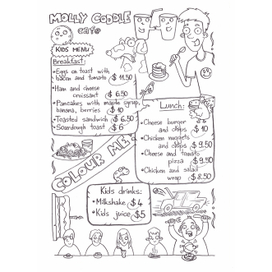 MOLLY CODDLE
cafe
KIDS MENU
Breakfast:
• Eggs on toast with
bacon and tomato $ 11.50
• Ham and cheese
croissant $ 6.50
• Pancakes with maple syrup,
banana, berries $ 10
• Toasted sandwich $ 6.50
• Sourdough toast $ 6
Lunch:
• Cheese burger
and chips $ 10
• Chicken nuggets
and chips $ 9.50
• Cheese and tomato
pizza $ 9.50
• Chicken salad
wrap $ 8.50
COLOUR ME!
Kids drinks:
• Milkshake $ 4
• Kids juice $ 5